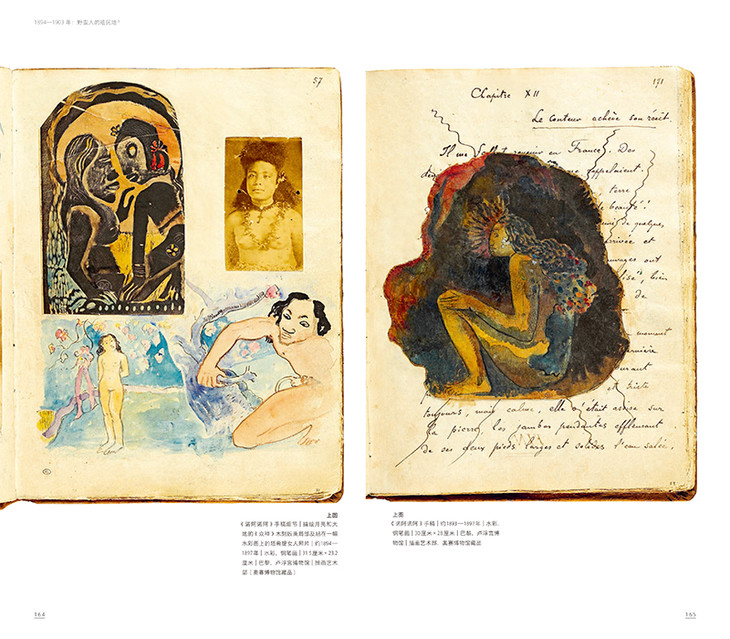 1894—1901年：野蛮人的建筑师？
57
171
Chapitre XII
Le conteur achève son récit
Il me fallut revenir en France. Des
appelaient.
terre
beauté!
de quelques
arrivée et
sauvages ont
bien
de
moment
dernière
durant
et triste
toujours, mais calme, elle s'était assise sur
la pierre, les jambes pendantes effleurant
de ses deux pieds larges et solides l'eau salée.
上图
《诺阿诺阿》手稿细节｜描绘月亮和大
地的《众神》木刻版画局部及贴在一幅
水彩画上的塔希提女人照片｜约1894—
1897年｜水彩、钢笔画｜31.5厘米×23.2
厘米｜巴黎，卢浮宫博物馆｜绘画艺术
部（奥赛博物馆藏品）
上图
《诺阿诺阿》手稿｜约1893—1897年｜水彩、
钢笔画｜30厘米×23厘米｜巴黎，卢浮宫博
物馆｜绘画艺术部，奥赛博物馆藏品
164
165